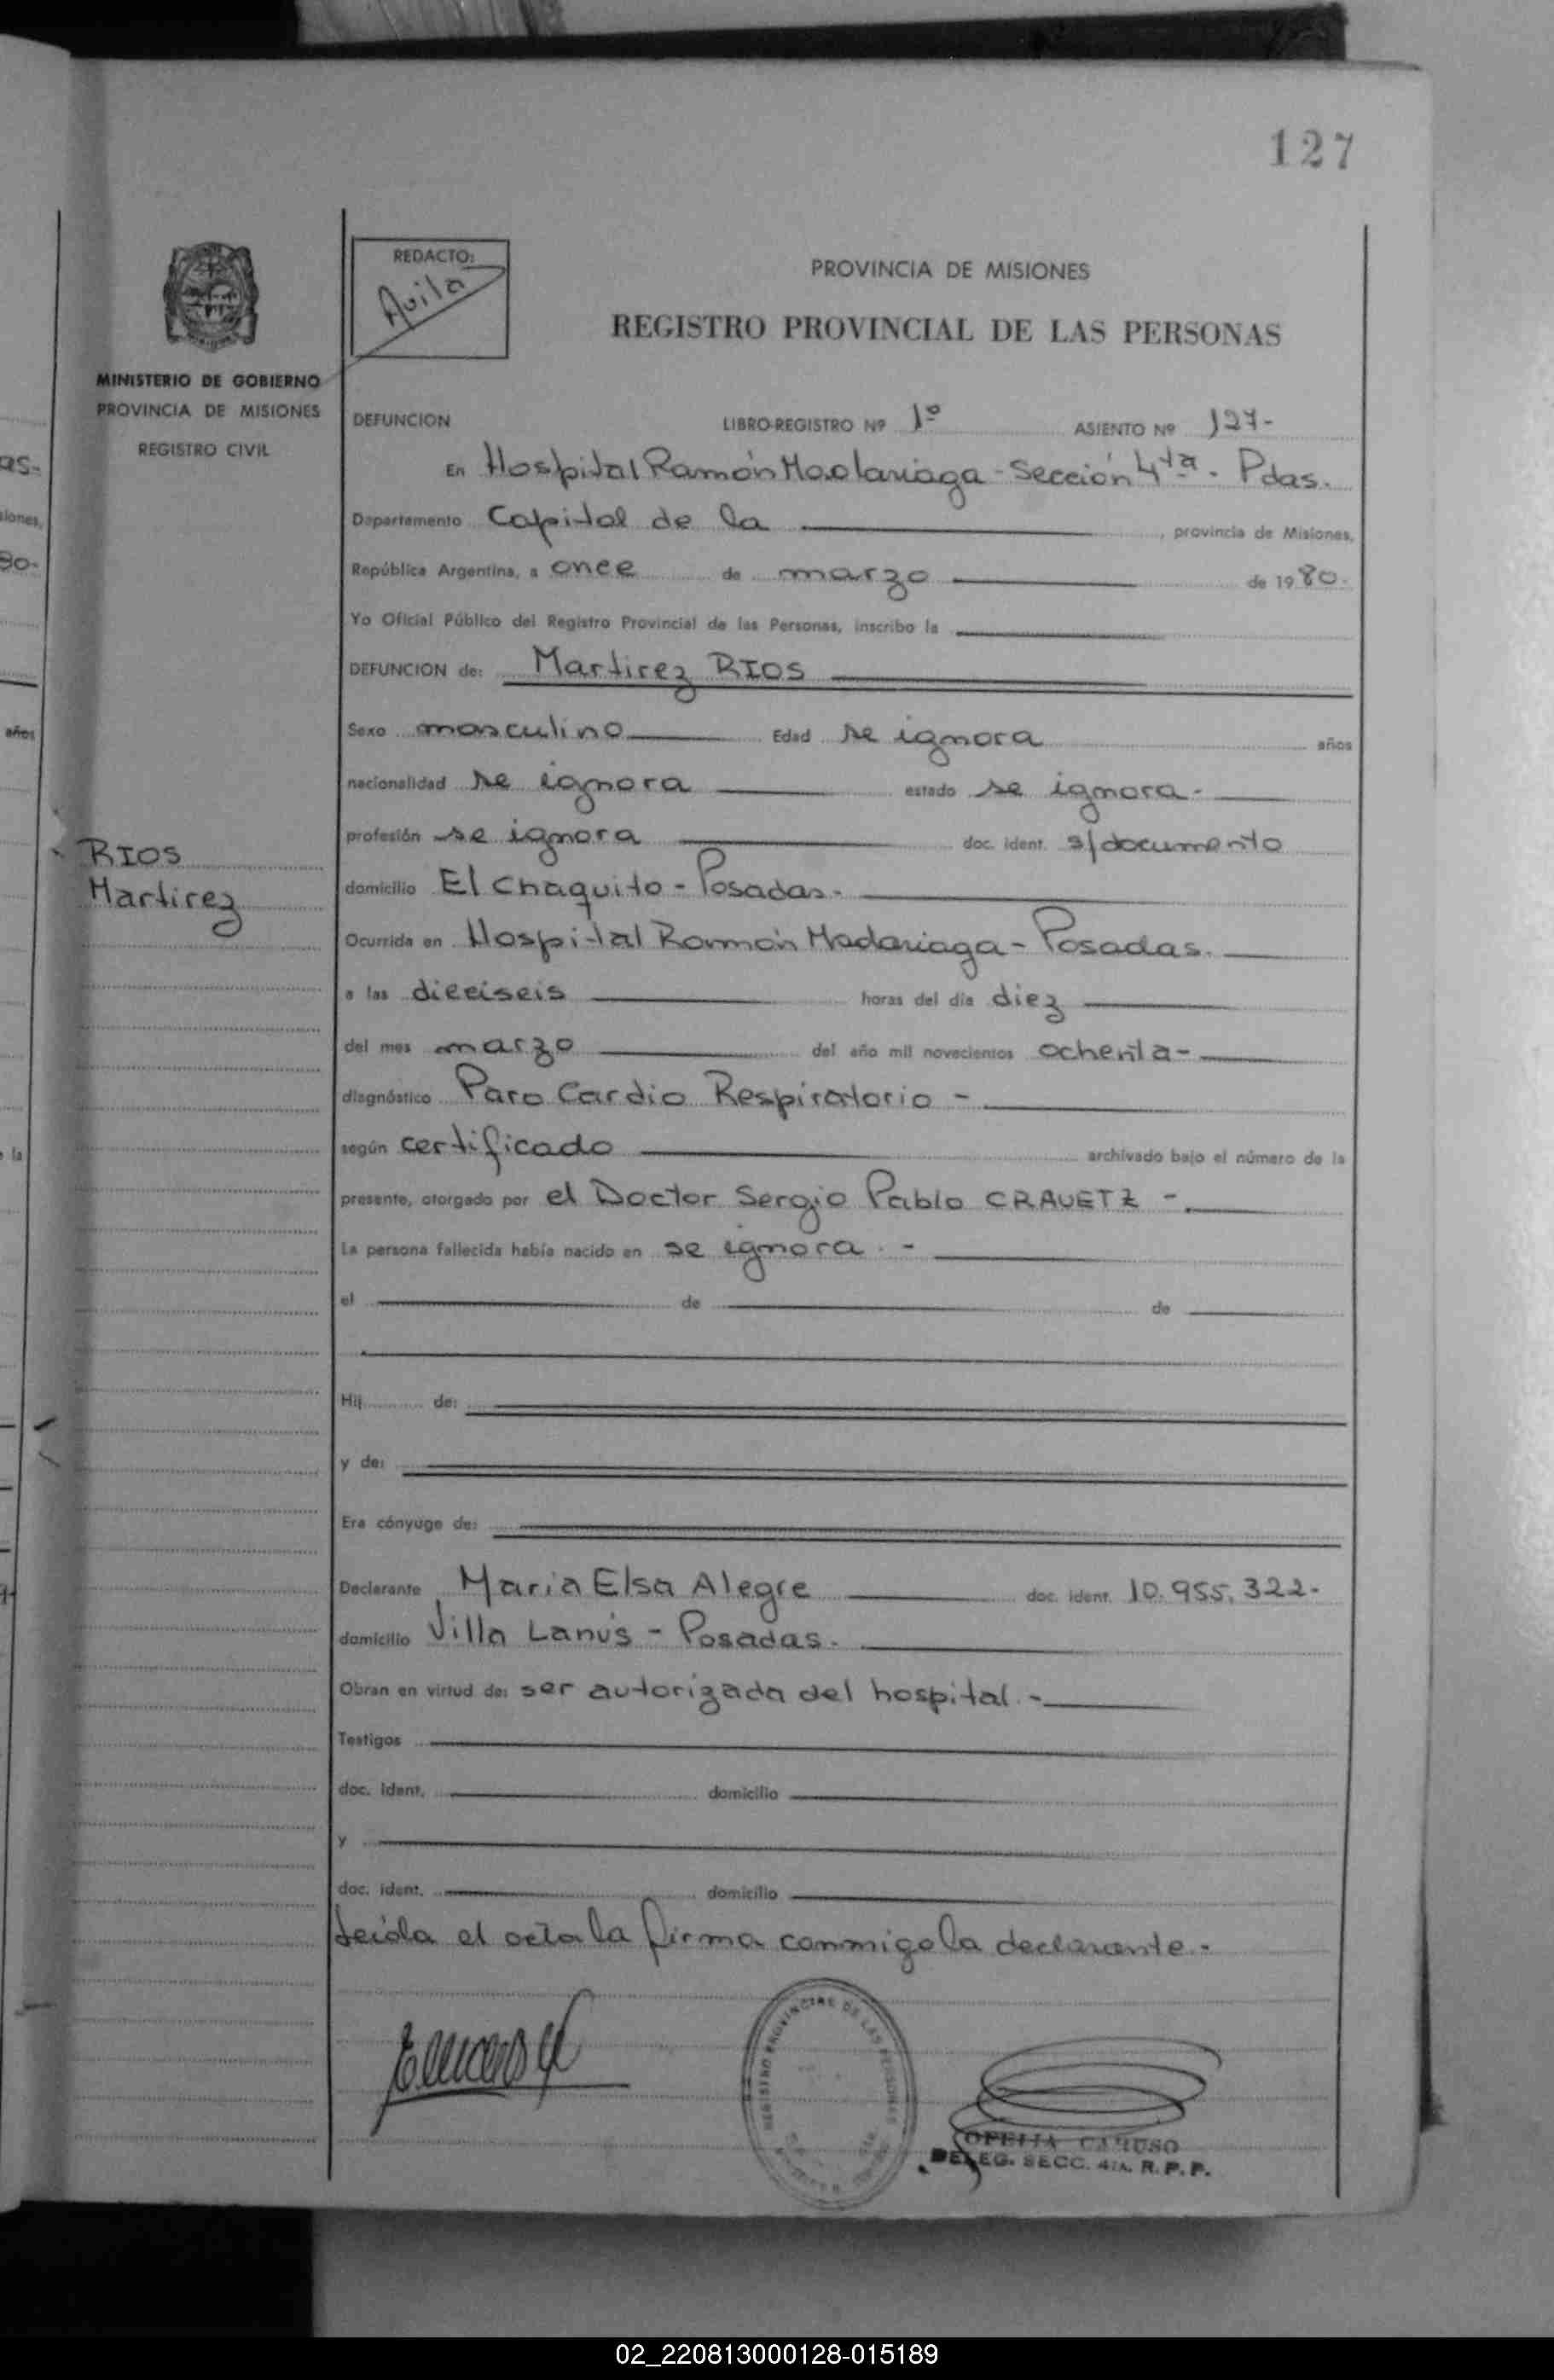 127
REDACTO:
Avila
PROVINCIA DE MISIONES
REGISTRO PROVINCIAL DE LAS PERSONAS
MINISTERIO DE GOBIERNO
PROVINCIA DE MISIONES
REGISTRO CIVIL
DEFUNCION LIBRO-REGISTRO Nº 1º ASIENTO Nº 127-
En Hospital Ramón Madariaga - Sección 4ta. Pdas.
Departamento Capital de la , provincia de Misiones,
República Argentina, a once de marzo de 1980.
Yo Oficial Público del Registro Provincial de las Personas, inscribo la
DEFUNCION de: Martirez RIOS
Sexo masculino Edad se ignora años
nacionalidad se ignora estado se ignora-
profesión se ignora doc. ident. s/documento
RIOS
Martirez
domicilio El Chaquito - Posadas.
Ocurrida en Hospital Ramón Madariaga - Posadas.
a las dieciseis horas del día diez
del mes marzo del año mil novecientos ochenta-
diagnóstico Paro Cardio Respiratorio -
según certificado archivado bajo el número de la
presente, otorgado por el Doctor Sergio Pablo CRAVETZ -
La persona fallecida había nacido en se ignora. -
el de de
Hij de:
y de:
Era cónyuge de:
Declarante Maria Elsa Alegre doc. ident. 10.955.322-
domicilio Villa Lanús - Posadas.
Obran en virtud de: ser autorizada del hospital. -
Testigos
doc. ident. domicilio
y
doc. ident. domicilio
Leída el acta la firma conmigo la declarante.-
REGISTRO PROVINCIAL DE LAS PERSONAS
OFELIA CARUSO
DELEG. SECC. 4ta. R.P.P.
as-
siones,
80-
años
la
02_220813000128-015189